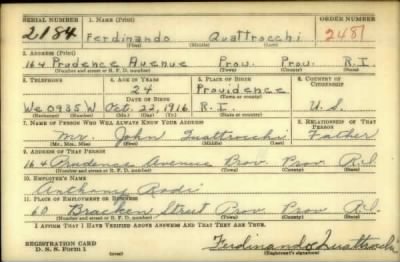 SERIAL NUMBER 1. NAME (Print) ORDER NUMBER
2184 Ferdinando Quattrocchi 2481
(First) (Middle) (Last)
2. ADDRESS (Print)
164 Prudence Avenue Prov. Prov. R.I.
(Number and street or R. F. D. number) (Town) (County) (State)
3. TELEPHONE 4. AGE IN YEARS 5. PLACE OF BIRTH 6. COUNTRY OF CITIZENSHIP
24 Providence
DATE OF BIRTH (Town or county)
We 0935 W Oct. 22, 1916 R.I. U.S.
(Exchange) (Number) (Mo.) (Day) (Yr.) (State or country)
7. NAME OF PERSON WHO WILL ALWAYS KNOW YOUR ADDRESS 8. RELATIONSHIP OF THAT PERSON
Mr. John Quattrocchi Father
(Mr., Mrs., Miss) (First) (Middle) (Last)
9. ADDRESS OF THAT PERSON
164 Prudence Avenue Prov. Prov. R.I.
(Number and street or R. F. D. number) (Town) (County) (State)
10. EMPLOYER'S NAME
Anthony Rodi
11. PLACE OF EMPLOYMENT OR BUSINESS
60 Bracken Street Prov Prov R.I.
(Number and street or R. F. D. number) (Town) (County) (State)
I AFFIRM THAT I HAVE VERIFIED ABOVE ANSWERS AND THAT THEY ARE TRUE.
REGISTRATION CARD
D. S. S. Form 1 Ferdinando Quattrocchi
(Registrant's signature)